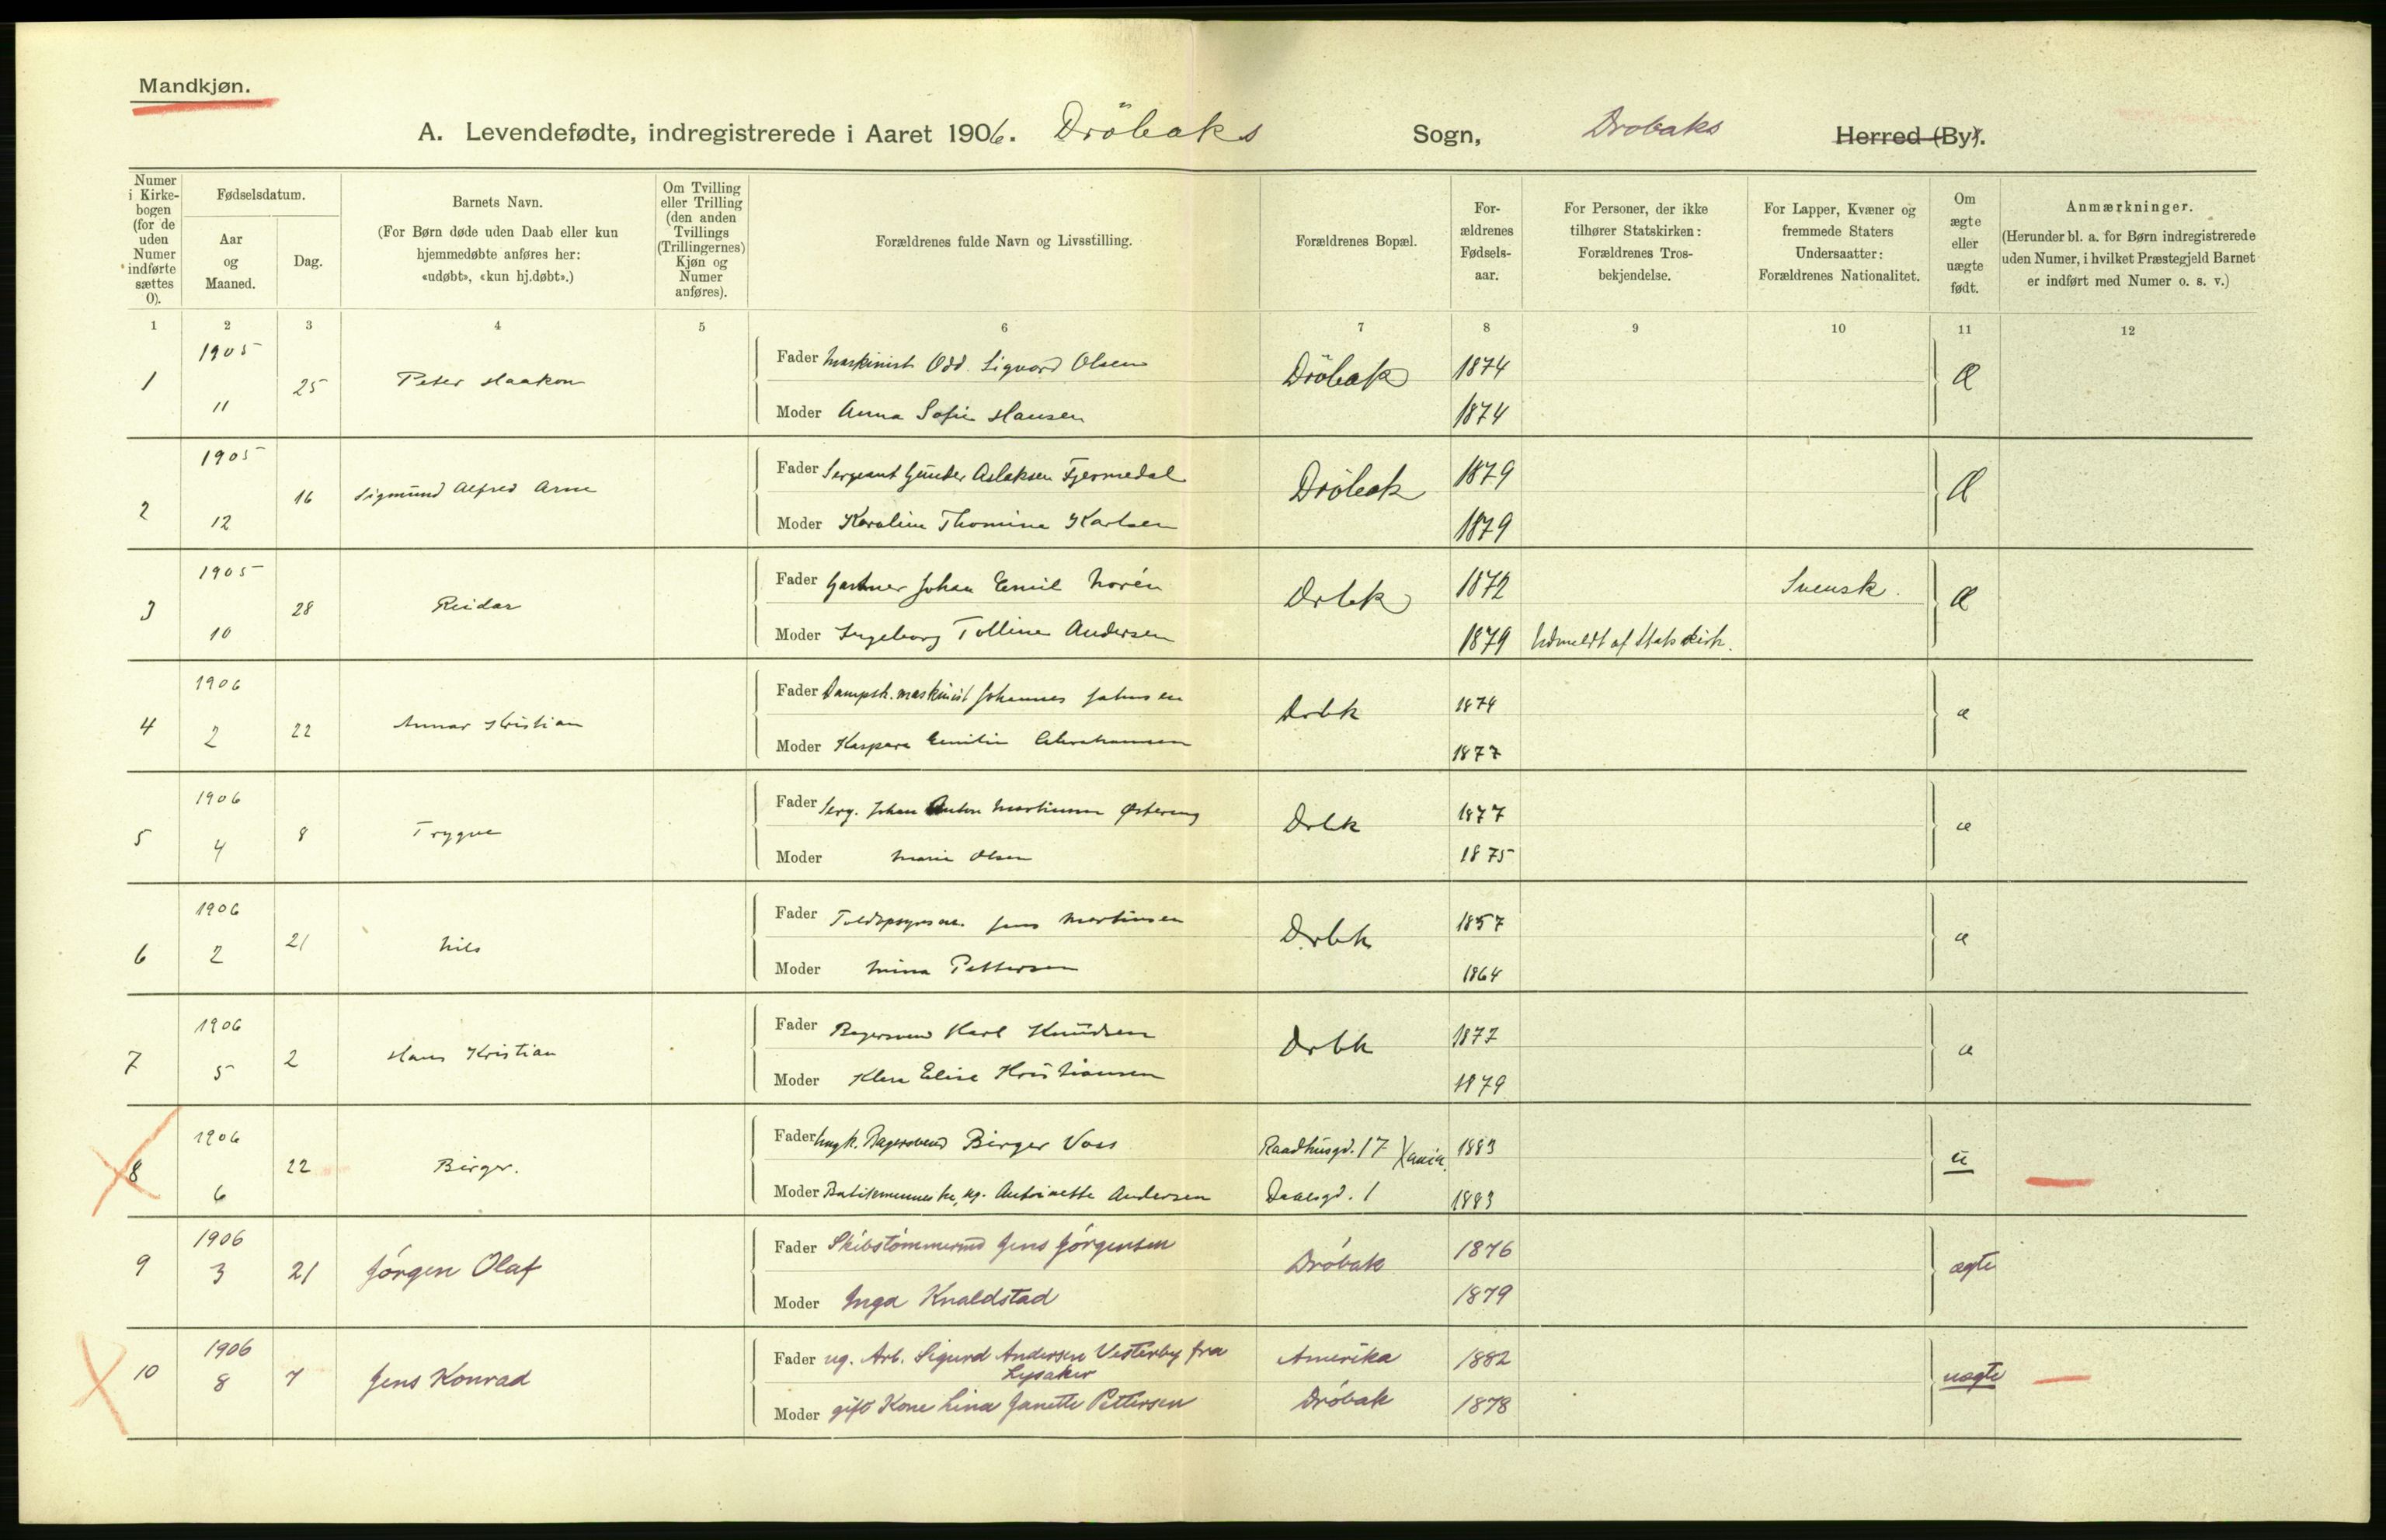 Mandkjøn.
A. Levendefødte, indregistrerede i Aaret 1906. Dröbaks Sogn, Drobaks Herred (By).
Numer i Kirkebogen (for de uden Numer indførte sættes 0).
Fødselsdatum.
Aar og Maaned.
Dag.
Barnets Navn.
(For Børn døde uden Daab eller kun hjemmedøbte anføres her: «udøbt», «kun hj.døbt».)
Om Tvilling eller Trilling (den anden Tvillings (Trillingernes) Kjøn og Numer anføres).
Forældrenes fulde Navn og Livsstilling.
Forældrenes Bopæl.
Forældrenes Fødselsaar.
For Personer, der ikke tilhører Statskirken: Forældrenes Trosbekjendelse.
For Lapper, Kvæner og fremmede Staters Undersaatter: Forældrenes Nationalitet.
Om ægte eller uægte født.
Anmærkninger.
(Herunder bl. a. for Børn indregistrerede uden Numer, i hvilket Præstegjeld Barnet er indført med Numer o. s. v.)
1 2 3 4 5 6 7 8 9 10 11 12
1905
Fader Maskinist Odd. Sigvard Olsen 1874
1 25 Peter Haakon Dröbak Æ
11 Moder Anna Sofie Hansen 1874
1905
Fader Sergeant Gunder Aslaksen Fjermedal 1879
2 16 Sigmund Alfred Arne Dröbak Æ
12 Moder Karoline Thomine Karlsen 1879
1905
Fader Gartner Johan Emil Norén 1872 Svensk.
3 28 Reidar Drbk Æ
10 Moder Ingeborg Tolline Andersen 1879 Udmeldt af Statskirk.
1906
Fader Dampsk. maskinist Johannes Johnsen 1874
4 22 Annar Kristian Drbk æ
2 Moder Kaspara Emilie Abrahamsen 1877
1906
Fader Serg. Johan Anton Martinsen Østereng 1877
5 8 Trygve Drbk æ
4 Moder Marie Olsen 1875
1906
Fader Jens Martinsen 1857
6 2 21 Nils Drbk æ
Moder Mina Pettersen 1864
1906
Fader Bagersvend Karl Knudsen 1877
7 2 Hans Kristian Drbk æ
5 Moder Elise Kristiansen 1879
1906
Fader Ungk. Bagersvend Birger Voss Raadhusgd. 17 Xania. 1883
8 22 Birger. u
6 Moder ug. Antoinette Andersen 1 1883
1906
Fader Skibstömmermd Jens Jörgensen 1876
9 3 21 Jörgen Olaf Dröbak ægte
Moder Inga Knaldstad 1879
1906
Fader ug. Arb. Sigurd Andersen Vesterby fra Lysaker Amerika 1882
10 8 7 Jens Konrad uægte
Moder gift Kone Lina Janette Pettersen Dröbak 1878